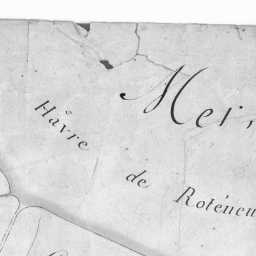 Mer
Hâvre de Roténeu